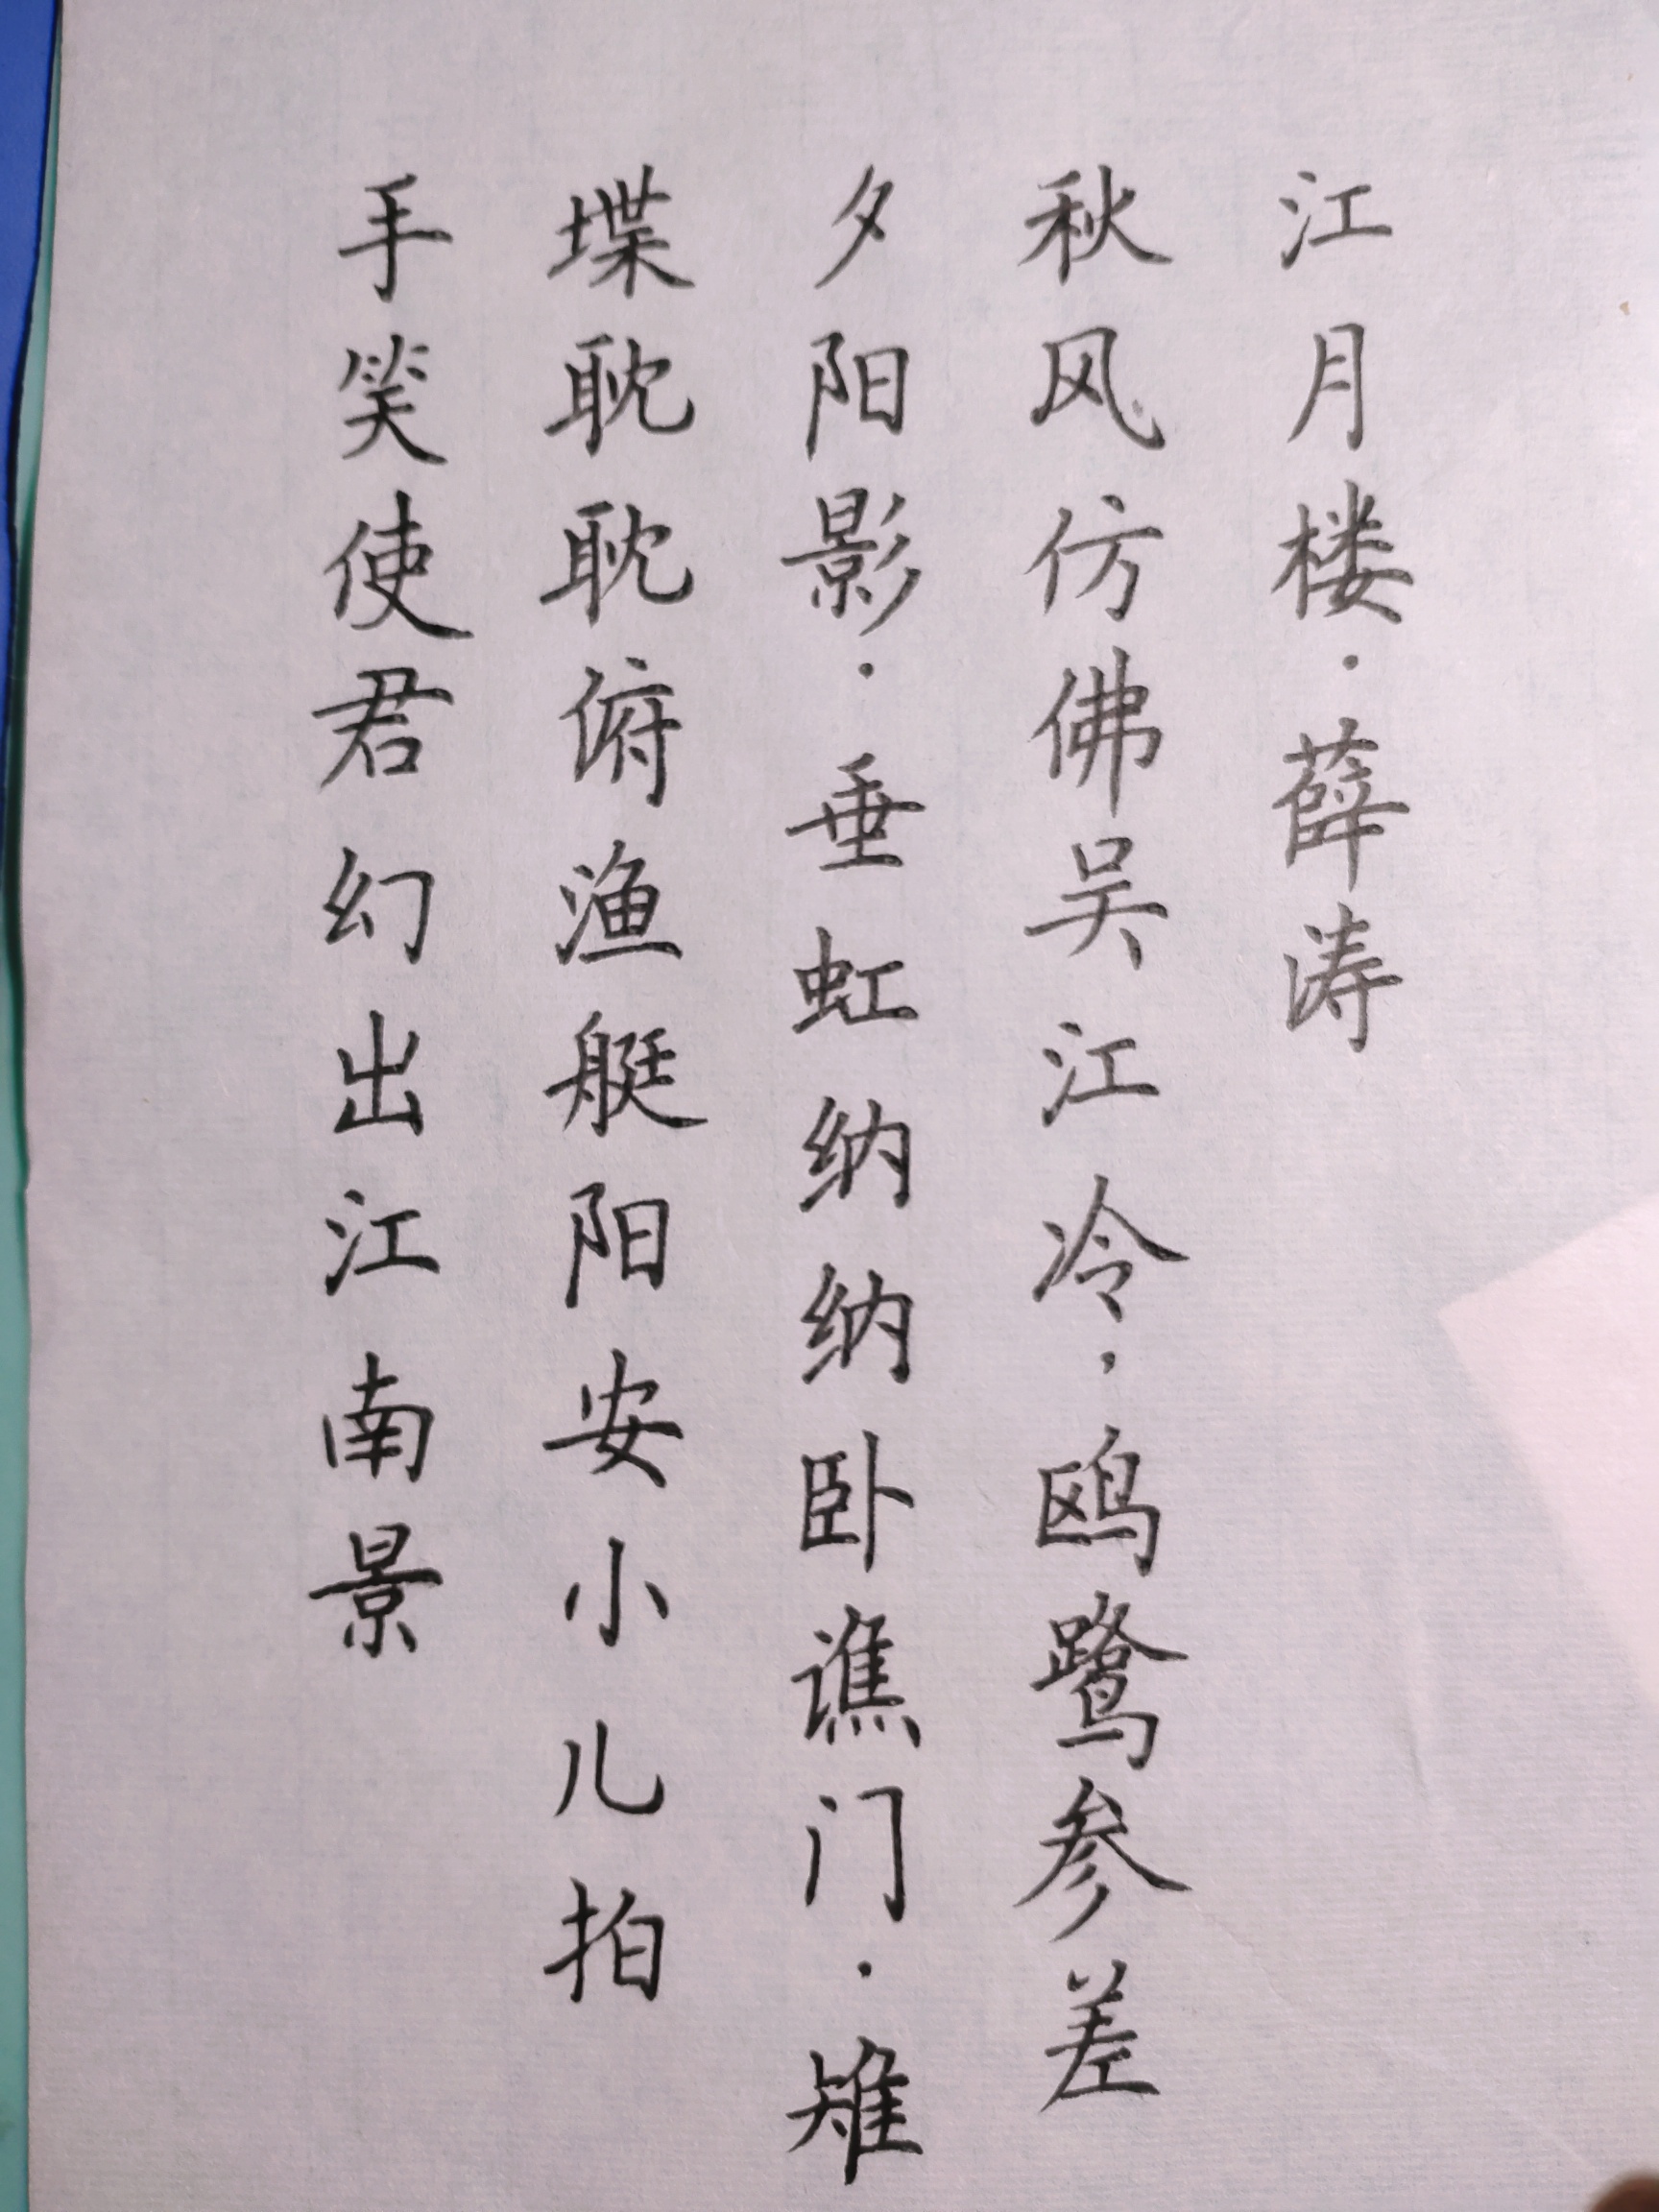 江月楼·薛涛
秋风仿佛吴江冷·鸥鹭参差
夕阳影·垂虹纳纳卧谯门·雉
堞耽耽俯渔艇阳安小儿拍
手笑使君幻出江南景